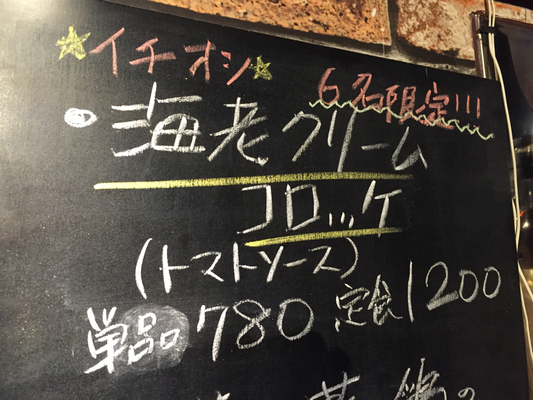 ★イチオシ★
6名限定!!!
海老クリーム
コロッケ
(トマトソース)
単品780 定食1200
の